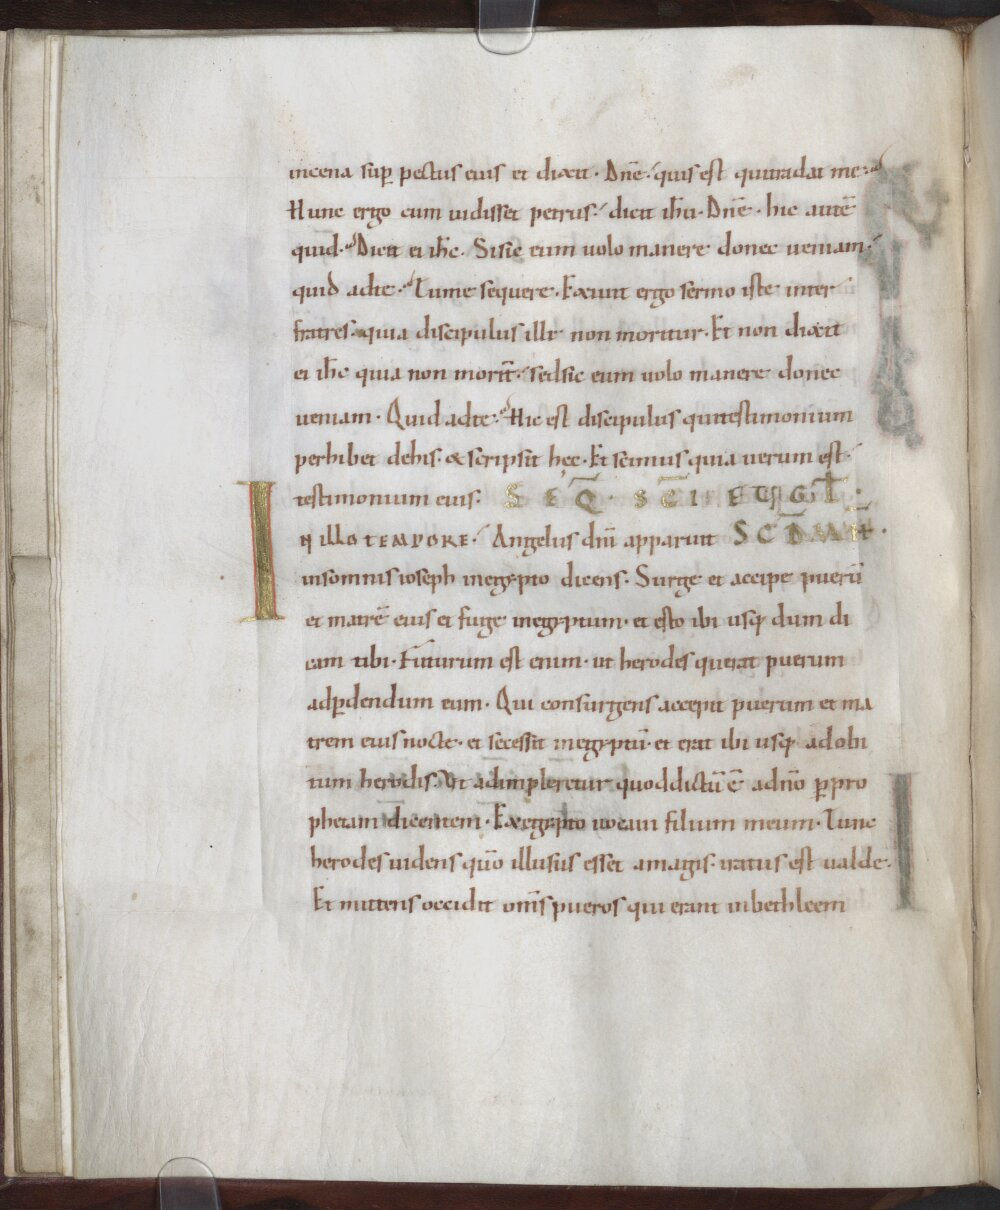 incena sup pectus eius et dixit · Dn̄e · quis est quitradat me·
Hunc ergo cum uidisset petrus · dicit ih̄u · Dn̄e · hic autē
quid · Dicit ei ih̄c · Sisic eum uolo manere donec ueniam ·
quid adte · Tume sequere · Exiuit ergo sermo iste inter
fratres · quia discipulus ille non moritur · Et non dixit
ei ih̄c quia non morit̄ · sedsic eum uolo manere donec
ueniam · Quid adte · Hic est discipulus quitestimonium
perhibet dehis · & scripsit hec · Et scimus quia uerum est ·
testimonium eius · SEQ̄ · SC̄I EUG̅L ·
IN illo TEMPORE · Angelus dn̄i apparuit SCD̄ MATH ·
insomnis ioseph inegypto dicens · Surge et accipe puerū
et matrē eius et fuge inegyptum · et esto ibi usq dum di
cam tibi · Futurum est enim · ut herodes querat puerum
adꝑdendum eum · Qui consurgens accepit puerum et ma
trem eius nocte · et secessit inegyptū · et erat ibi usq adobi
tum herodis · Vt adimpleretur quoddictū ē adnō ꝑpro
phetam dicentem · Exegypto uocaui filium meum · Tunc
herodes uidens qūo illusus esset amagis · iratus est ualde ·
Et mittens occidit om̄s pueros qui erant inbethleem